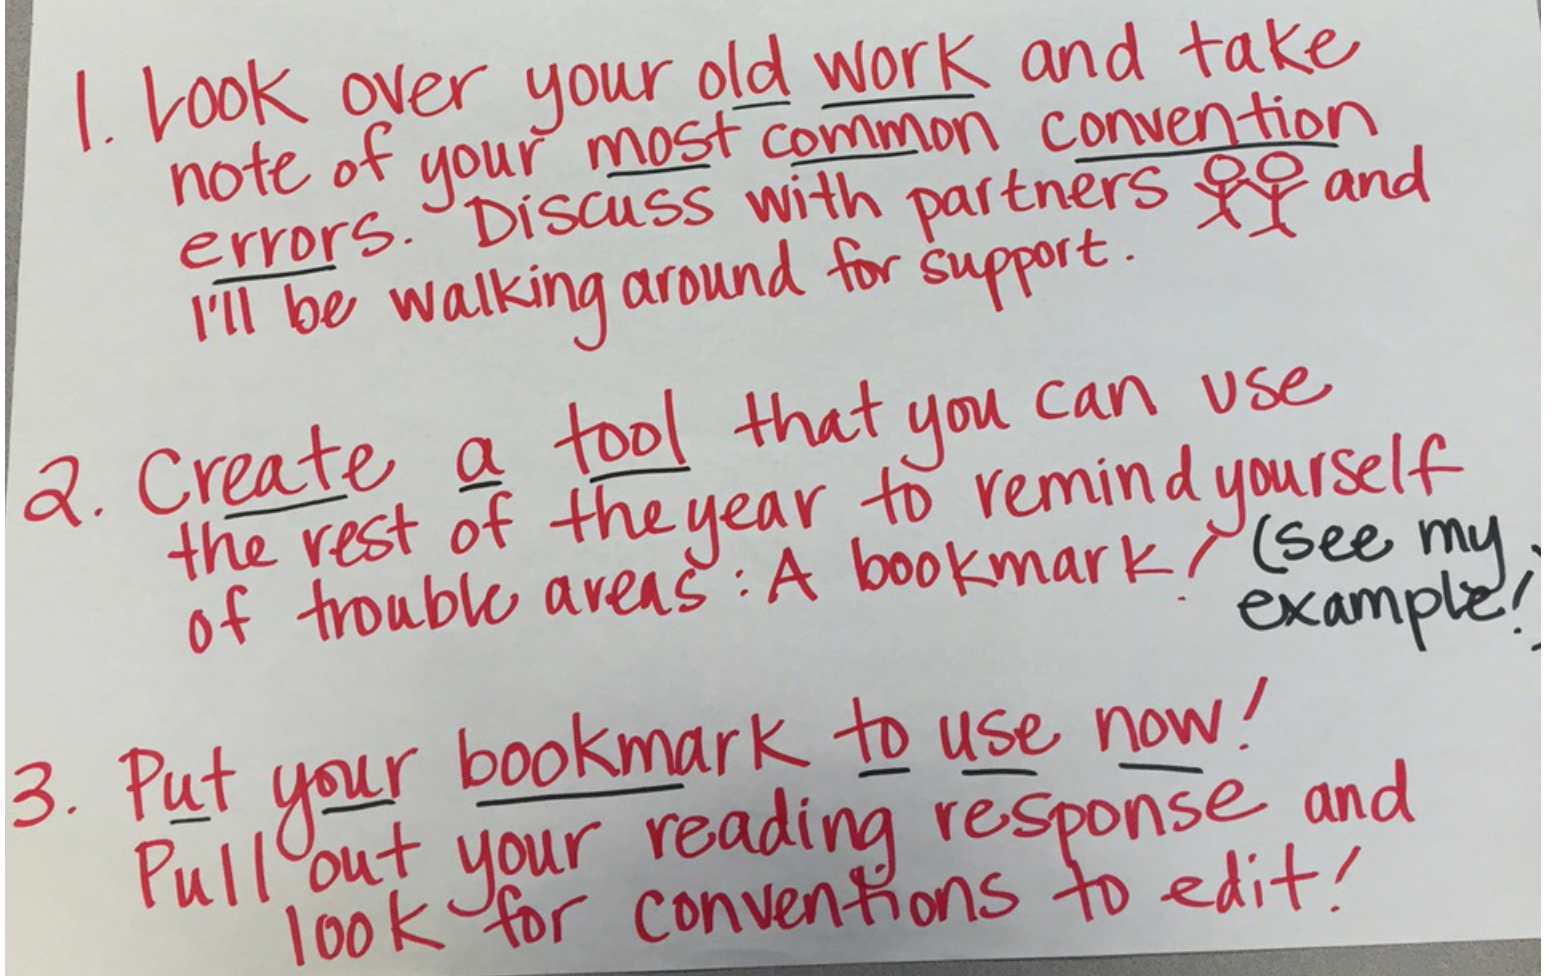 1. Look over your old work and take
note of your most common convention
errors. Discuss with partners and
I'll be walking around for support.
2. Create a tool that you can use
the rest of the year to remind yourself
of trouble areas: A bookmark! (see my
example!)
3. Put your bookmark to use now!
Pull out your reading response and
look for conventions to edit!